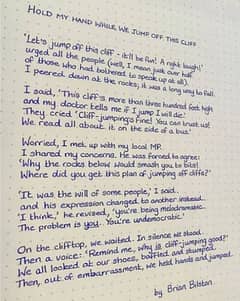 HOLD MY HAND WHILE WE JUMP OFF THIS CLIFF
'Let's jump off this cliff - it'll be fun! A right laugh!'
urged all the people (well, I mean just over half
of those who had bothered to speak up at all).
I peered down at the rocks; it was a long way to fall.
I said, 'This cliff's more than three hundred foot high
and my doctor tells me if I jump I will die.'
They cried 'Cliff-jumping's fine! You can trust us!
We read all about it on the side of a bus.'
Worried, I met up with my local MP.
I shared my concerns. He was forced to agree:
'Why the rocks below would smash you to bits!
Where did you get this plan of jumping off cliffs?'
'It was the will of some people,' I said.
and his expression changed to another instead.
'I think,' he revised, 'you're being melodramatic.
The problem is you. You're undemocratic.'
On the clifftop, we waited. In silence we stood.
Then a voice: 'Remind me, why is cliff-jumping good?'
We all looked at our shoes, baffled and stumped.
Then, out of embarrassment, we held hands and jumped.
by Brian Bilston